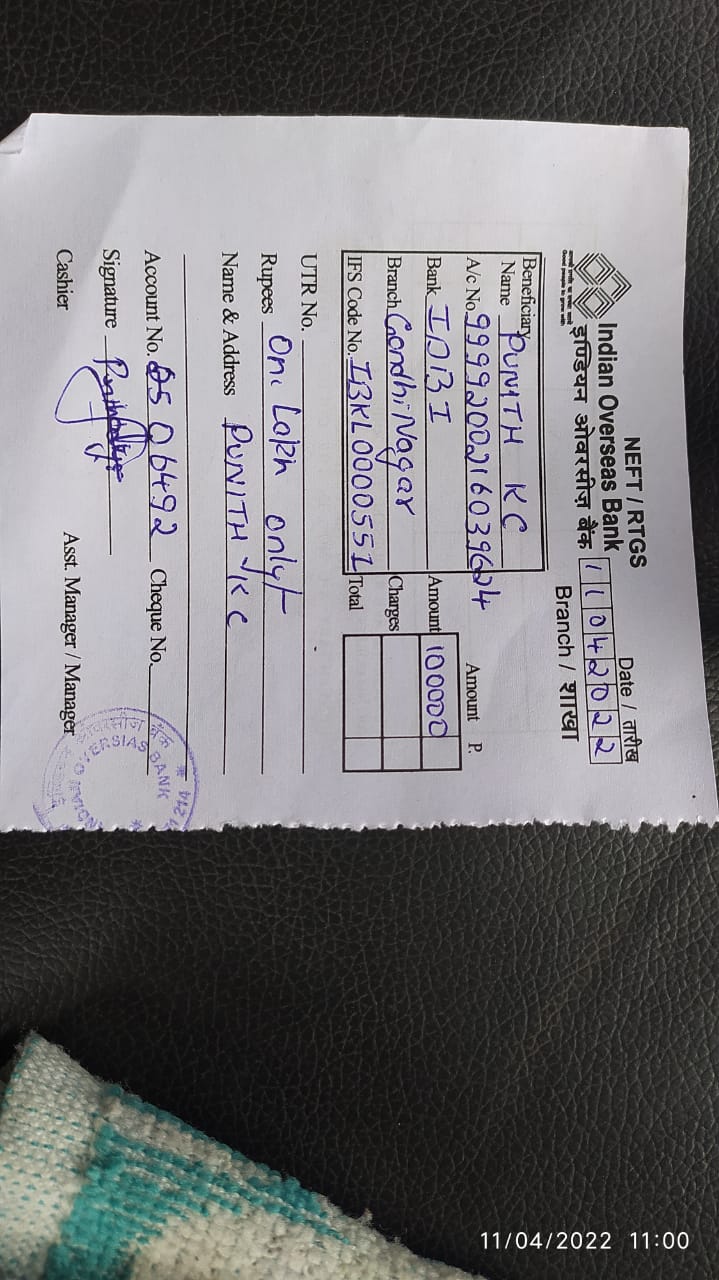 NEFT / RTGS
Indian Overseas Bank
इण्डियन ओवरसीज़ बैंक
आपकी प्रगति का सच्चा साथी
Good people to grow with
Date / तारीख
11042022
Branch / शाखा
Beneficiary
Name PUNITH KC
A/c No. 9999200216039624
Bank IDBI
Branch Gandhi Nagar
IFS Code No. IBKL0000551
Amount P.
Amount 100000
Charges
Total
UTR No.
Rupees One Lakh only/-
Name & Address PUNITH K C
Account No. 0506492 Cheque No.
Signature
Cashier Asst. Manager / Manager
ओवरसीज बैंक
OVERSIAS BANK
11/04/2022 11:00